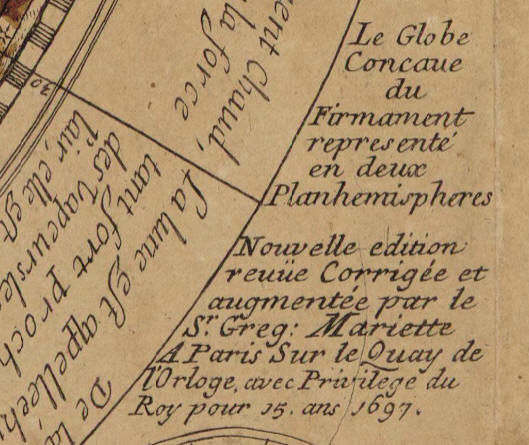 Le Globe
Concaue
du
Firmament
representé
en deux
Planhemispheres
Nouvelle edition
reuüe Corrigée et
augmentée par le
Sr. Greg: Mariette
A Paris Sur le Quay de
l'Orloge, avec Privilege du
Roy pour 15. ans 1697.
ment chaud,
la force
30
La lune est appellée h
tant fort proch
des Vapeurs le
l'air, elle est
De la